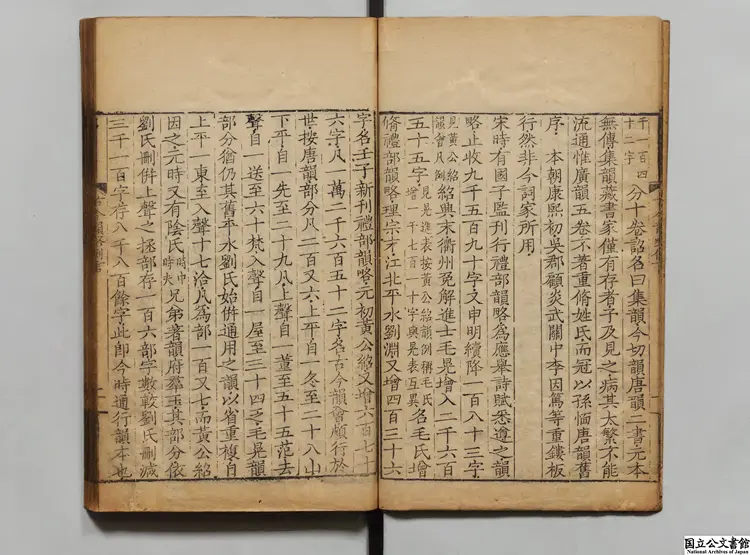 千一百四
十二字 分十卷詔名曰集韻今切韻唐韻二書元本
無傳集韻藏書家僅有存者予及見之病其太繁不能
流通惟廣韻五卷不著重脩姓氏而冠以孫愐唐韻舊
序 本朝康熙初吳郡顧炎武關中李因篤等重鏤板
行然非今詞家所用
宋時有國子監刊行禮部韻略爲應舉詩賦悉遵之韻
略止收九千五百九十字又申明續降一百八十三字
見黃公紹
韻會凡例 紹興末衢州免解進士毛晃增入二千六百
五十五字 見晃進表按黃公紹韻例稱毛氏
增一千七百一十字與晃表互異 名毛氏增
脩禮部韻略理宗末江北平水劉淵又增四百三十六
字名壬子新刊禮部韻略元初黃公紹又增六百七十
六字凡一萬二千六百五十二字名古今韻會頗行於
世按唐韻部分凡二百又六上平自一冬至二十八山
下平自一先至二十九凡上聲自一董至五十五范去
聲自一送至六十梵入聲自一屋至三十四乏毛晃韻
部分猶仍其舊平水劉氏始併通用之韻以省重複自
上平一東至入聲十七洽凡爲部一百又七而黃公紹
因之元時又有陰氏 時中
時夫 兄弟著韻府羣玉其部分依
劉氏刪併上聲之拯部存一百六部字數較劉氏刪減
三千一百字存八千八百餘字此卽今時通行韻本也
国立公文書館
National Archives of Japan